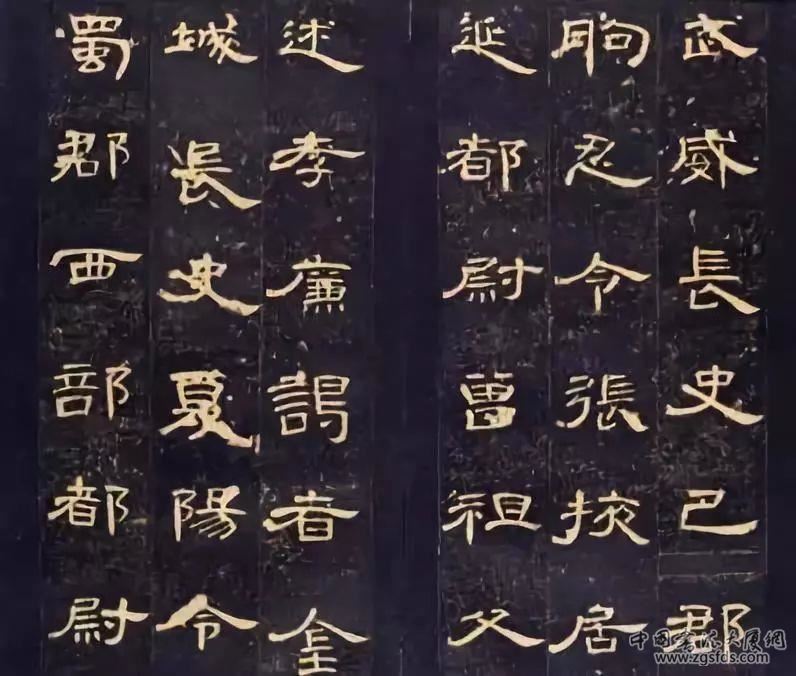 武威長史巴郡
朐忍令張掖居
延都尉曾祖父
述孝廉謁者金
城長史夏陽令
蜀郡西部都尉
中國書法大展網
www.zgsfds.com